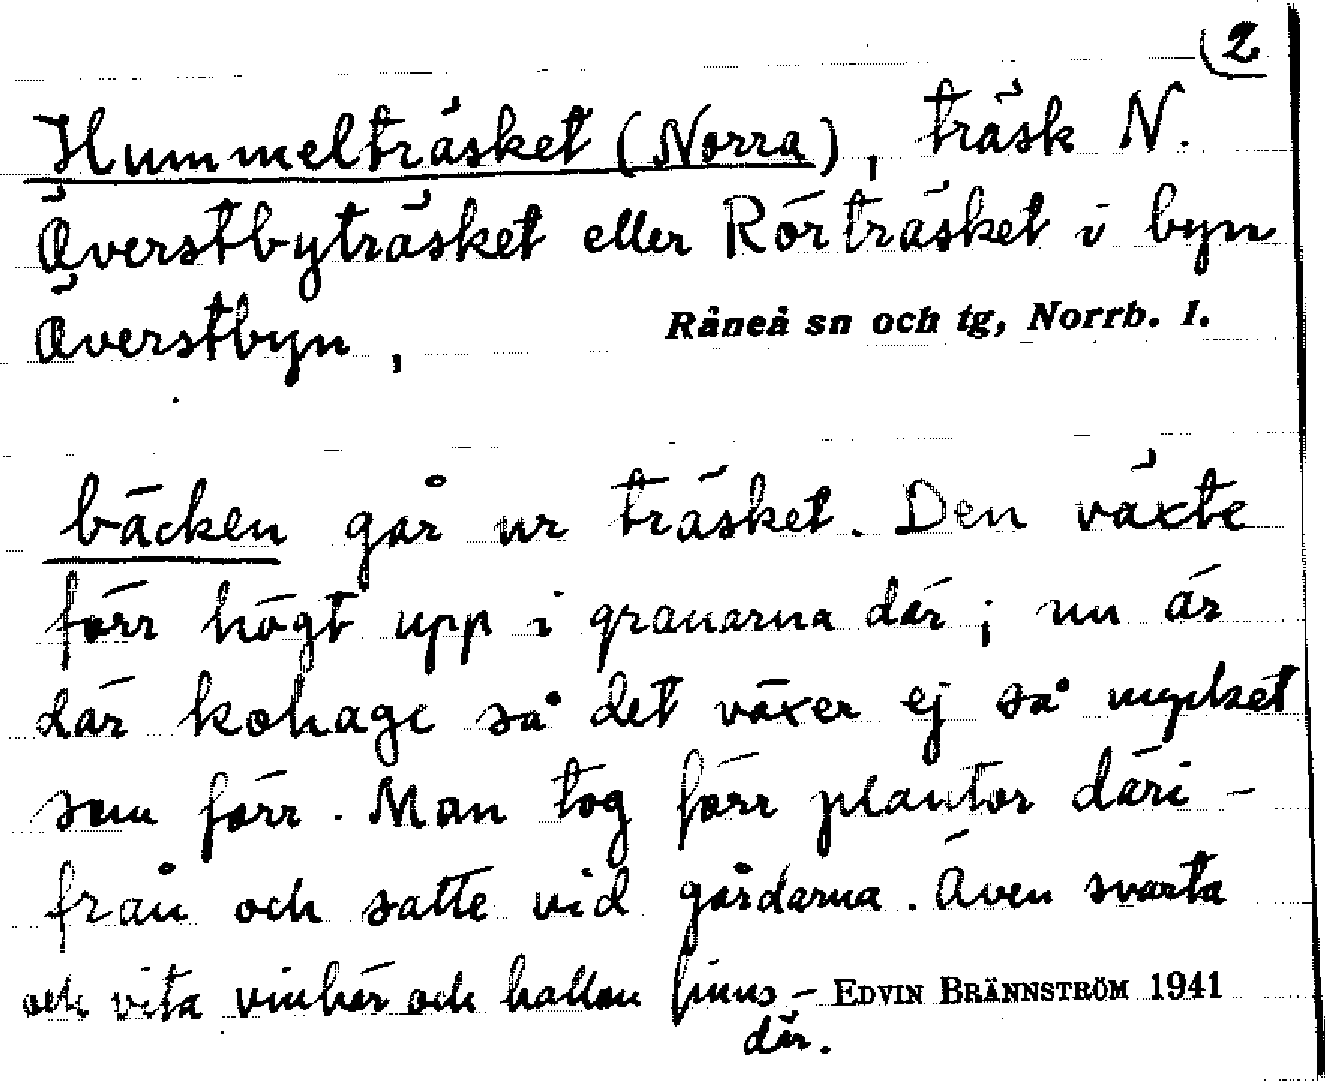 2
Hummelträsket (Norra), träsk N.
Överstbyträsket eller Rörträsket i byn
Överstbyn, Råneå sn och tg, Norrb. l.
bäcken går ur träsket. Den växte
förr högt upp i granarna där; nu är
där kohage så det växer ej så mycket
som förr. Man tog förr plantor däri-
från och satte vid gårdarna. Även svarta
och vita vinbär och hallon finns - EDVIN BRÄNNSTRÖM 1941
där.